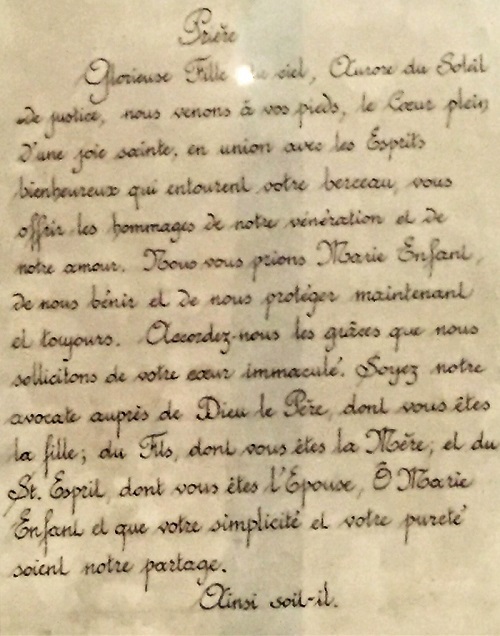 Prière
Glorieuse Fille du ciel, Aurore du Soleil
de justice, nous venons à vos pieds, le Cœur plein
d'une joie sainte, en union avec les Esprits
bienheureux qui entourent votre berceau, vous
offrir les hommages de notre vénération et de
notre amour. Nous vous prions Marie Enfant,
de nous bénir et de nous protéger maintenant
et toujours. Accordez-nous les grâces que nous
sollicitons de votre cœur immaculé. Soyez notre
avocate auprès de Dieu le Père, dont vous êtes
la fille; du Fils, dont vous êtes la Mère; et du
St. Esprit, dont vous êtes l'Epouse, Ô Marie
Enfant et que votre simplicité et votre pureté
soient notre partage.
Ainsi soit-il.